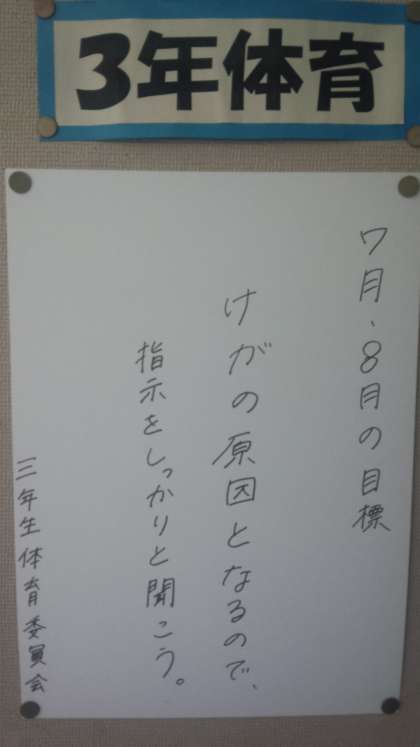 3年体育
7月、8月の目標
けがの原因となるので、
指示をしっかりと聞こう。
三年生体育委員会